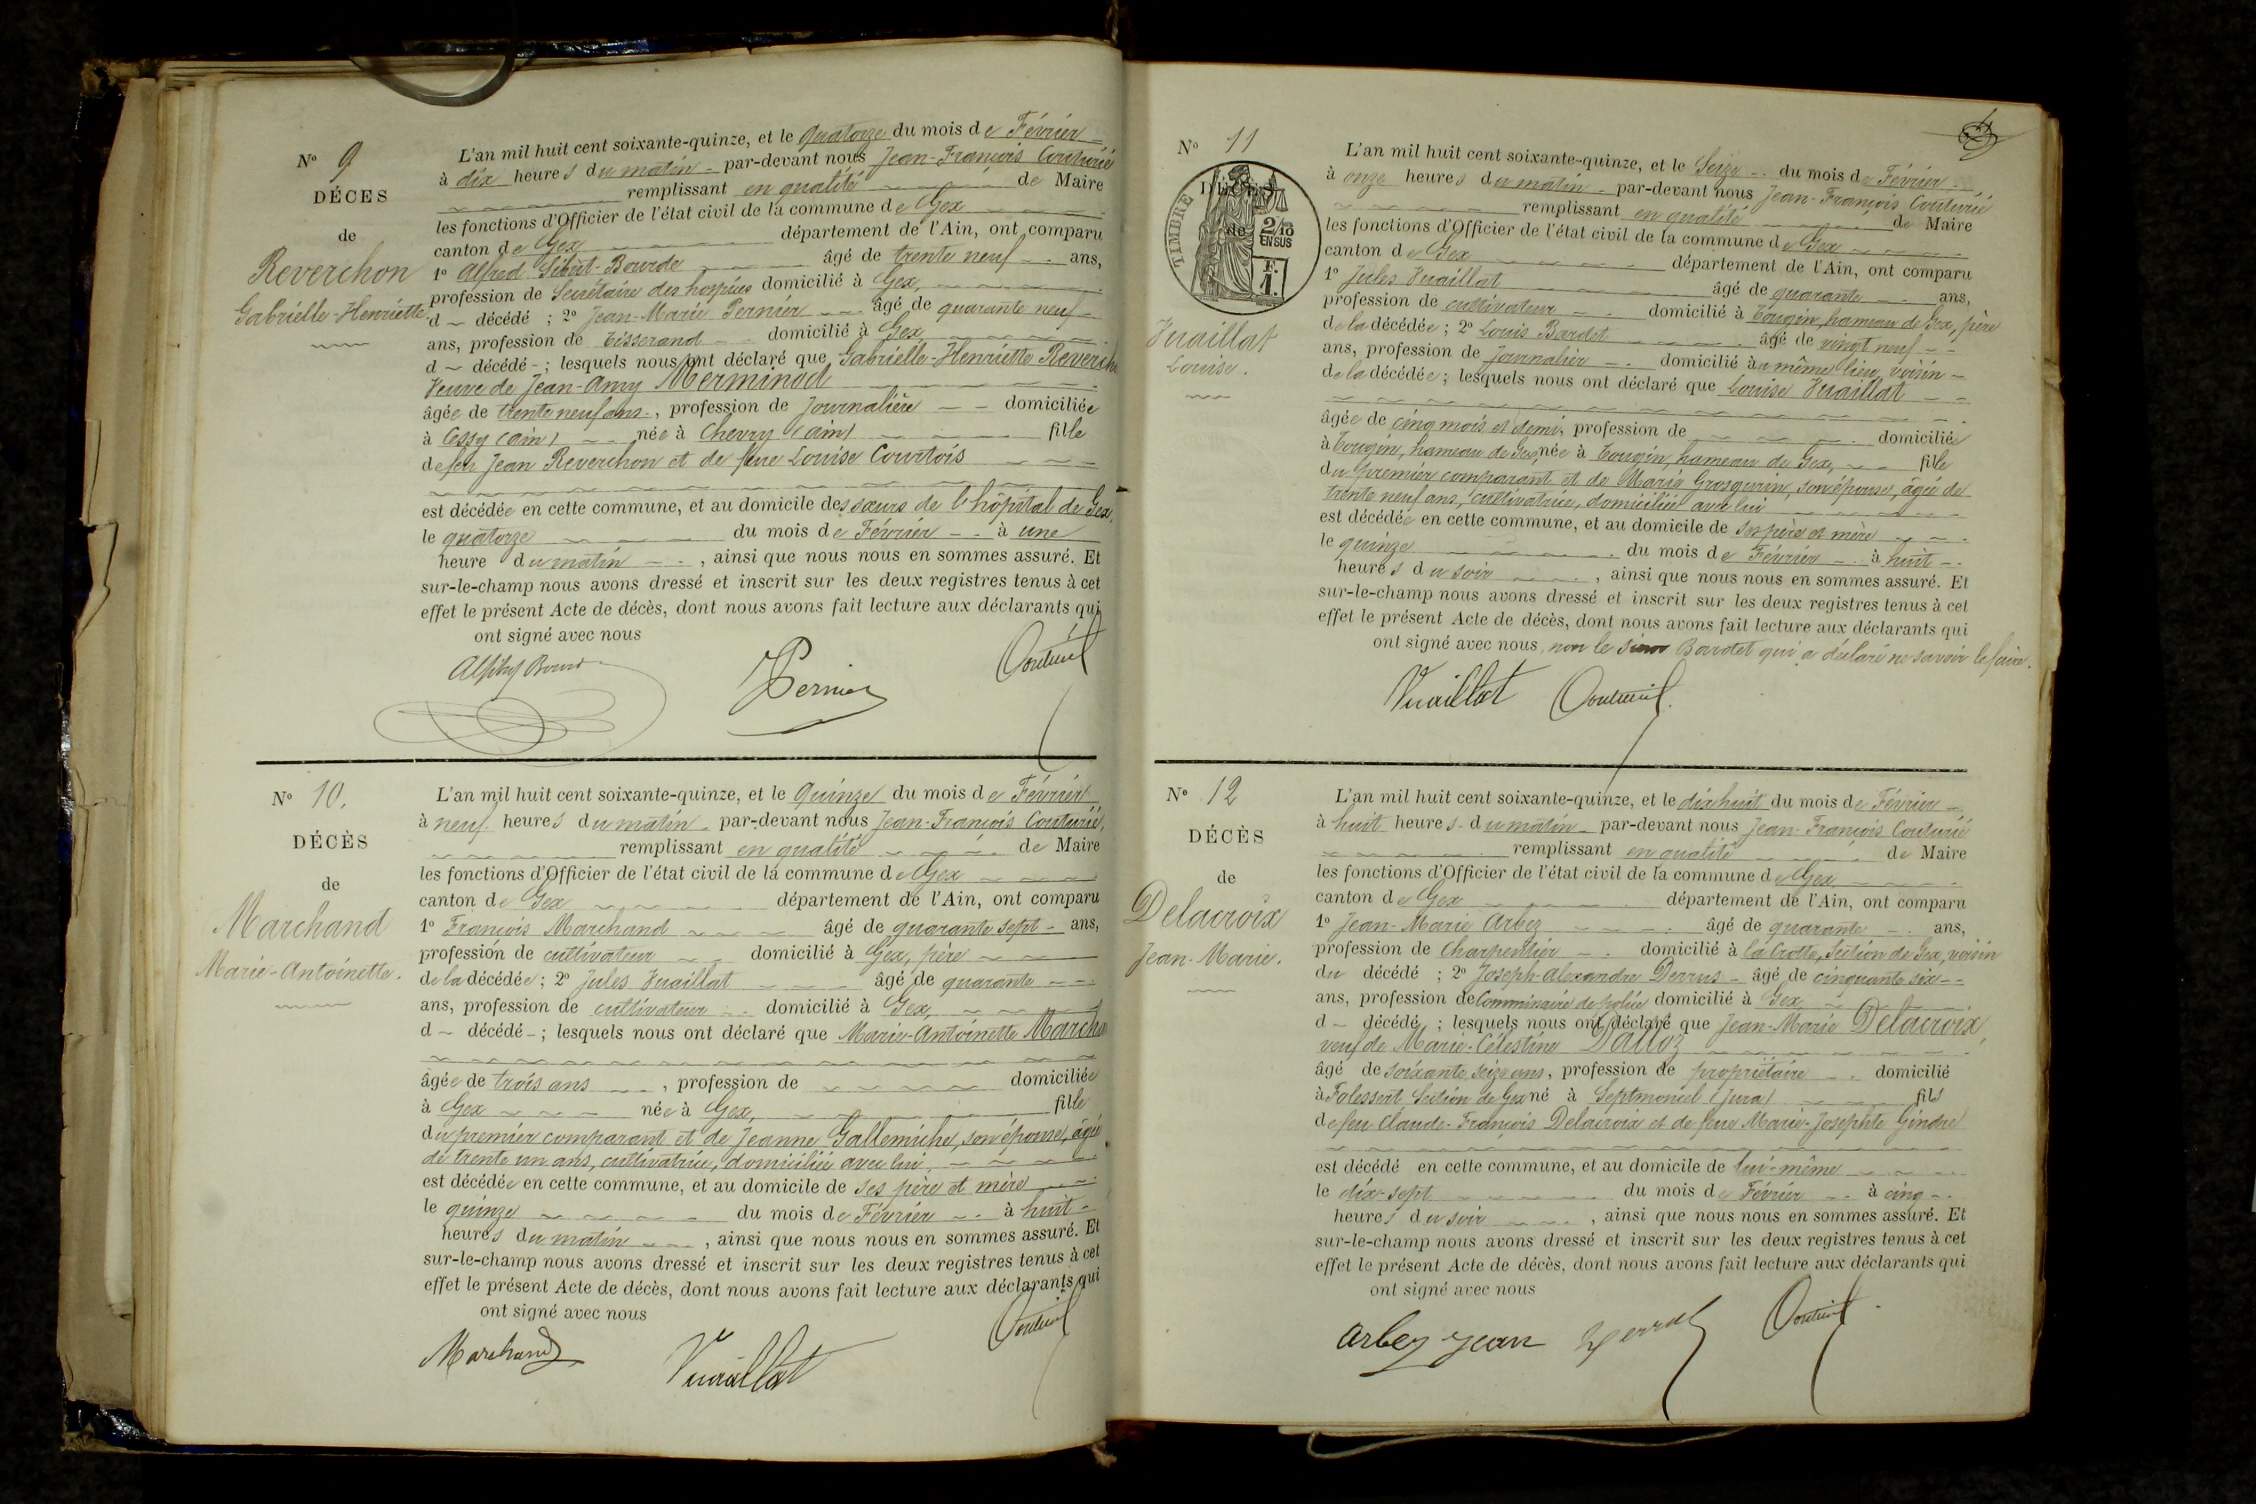 Nº 9
DÉCES
de
Reverchon
Gabrielle-Henriette.
L'an mil huit cent soixante-quinze, et le quatorze du mois de Février
à dix heures du matin par-devant nous Jean-François Couturié
remplissant en qualité de Maire
les fonctions d'Officier de l'état civil de la commune de Gex
canton de Gex département de l'Ain, ont comparu
1º Alfred Bourde âgé de trente neuf ans,
profession de Secrétaire des hospices domicilié à Gex,
d décédé ; 2º Jean-Marie Pernier âgé de quarante neuf
ans, profession de tisserand domicilié à Gex
d décédé ; lesquels nous ont déclaré que Gabrielle-Henriette Reverch
Veuve de Jean-Amy Merminod
âgée de trente neuf ans, profession de Journalière domiciliée
à Cessy (Ain) née à Chevry (Ain) fille
de feu Jean Reverchon et de feue Louise Courtois
est décédée en cette commune, et au domicile des sœurs de l'hôpital de Gex,
le quatorze du mois de Février à une
heure du matin , ainsi que nous nous en sommes assuré. Et
sur-le-champ nous avons dressé et inscrit sur les deux registres tenus à cet
effet le présent Acte de décès, dont nous avons fait lecture aux déclarants qui
ont signé avec nous
Pernier
Nº 10.
DÉCÈS
de
Marchand
Marie-Antoinette.
L'an mil huit cent soixante-quinze, et le quinze du mois de Février
à neuf heures du matin par-devant nous Jean-François Couturié,
remplissant en qualité de Maire
les fonctions d'Officier de l'état civil de la commune de Gex
canton de Gex département de l'Ain, ont comparu
1º François Marchand âgé de quarante sept ans,
profession de cultivateur domicilié à Gex, père
de la décédée ; 2º Jules Vuaillat âgé de quarante
ans, profession de cultivateur domicilié à Gex,
d décédé ; lesquels nous ont déclaré que Marie-Antoinette Marcha
âgée de trois ans , profession de domiciliée
à Gex née à Gex, fille
du premier comparant et de Jeanne Gallemiche, son épouse, âgée
de trente un ans, cultivatrice, domiciliée avec lui,
est décédée en cette commune, et au domicile de ses père et mère
le quinze du mois de Février à huit
heures du matin , ainsi que nous nous en sommes assuré. Et
sur-le-champ nous avons dressé et inscrit sur les deux registres tenus à cet
effet le présent Acte de décès, dont nous avons fait lecture aux déclarants qui
ont signé avec nous
Marchand Vuaillat
Nº 11
DÉCÈS
de
TIMBRE
2/10
EN SUS
F.
1.
Vuaillat
Louise.
L'an mil huit cent soixante-quinze, et le Seize du mois de Février
à onze heures du matin par-devant nous Jean-François Couturié
remplissant en qualité de Maire
les fonctions d'Officier de l'état civil de la commune de Gex
canton de Gex département de l'Ain, ont comparu
1º Jules Vuaillat âgé de quarante ans,
profession de cultivateur domicilié à Tougin, hameau de Gex, père
de la décédée ; 2º Louis Bardet âgé de vingt neuf
ans, profession de journalier domicilié au même lieu, voisin
de la décédée ; lesquels nous ont déclaré que Louise Vuaillat
âgée de cinq mois et demi, profession de domiciliée
à Tougin, hameau de Gex, née à Tougin, hameau de Gex, fille
du premier comparant et de Marie Grosgurin, son épouse, âgée de
trente neuf ans, cultivatrice, domiciliée avec lui
est décédée en cette commune, et au domicile de ses père et mère
le quinze du mois de Février à huit
heures du soir , ainsi que nous nous en sommes assuré. Et
sur-le-champ nous avons dressé et inscrit sur les deux registres tenus à cet
effet le présent Acte de décès, dont nous avons fait lecture aux déclarants qui
ont signé avec nous, non le qui a déclaré ne savoir le faire.
Vuaillat
Nº 12
DÉCÈS
de
Delacroix
Jean-Marie.
L'an mil huit cent soixante-quinze, et le dix huit du mois de Février
à huit heures du matin par-devant nous Jean-François Couturié
remplissant en qualité de Maire
les fonctions d'Officier de l'état civil de la commune de Gex
canton de Gex département de l'Ain, ont comparu
1º Jean-Marie Arbez âgé de quarante ans,
profession de Charpentier domicilié à la Crotte, Section de Gex, voisin
du décédé ; 2º Joseph-Alexandre Derrus âgé de cinquante six
ans, profession de Commissaire de police domicilié à Gex
d décédé ; lesquels nous ont déclaré que Jean-Marie Delacroix,
veuf de Marie-Célestine Dalloz
âgé de soixante seize ans, profession de propriétaire domicilié
à Section de Gex né à Septmoncel (Jura) fils
de feu Claude-François Delacroix et de feue Marie-Josephte Gindre
est décédé en cette commune, et au domicile de lui-même
le dix-sept du mois de Février à cinq
heures du soir , ainsi que nous nous en sommes assuré. Et
sur-le-champ nous avons dressé et inscrit sur les deux registres tenus à cet
effet le présent Acte de décès, dont nous avons fait lecture aux déclarants qui
ont signé avec nous
arbez jean